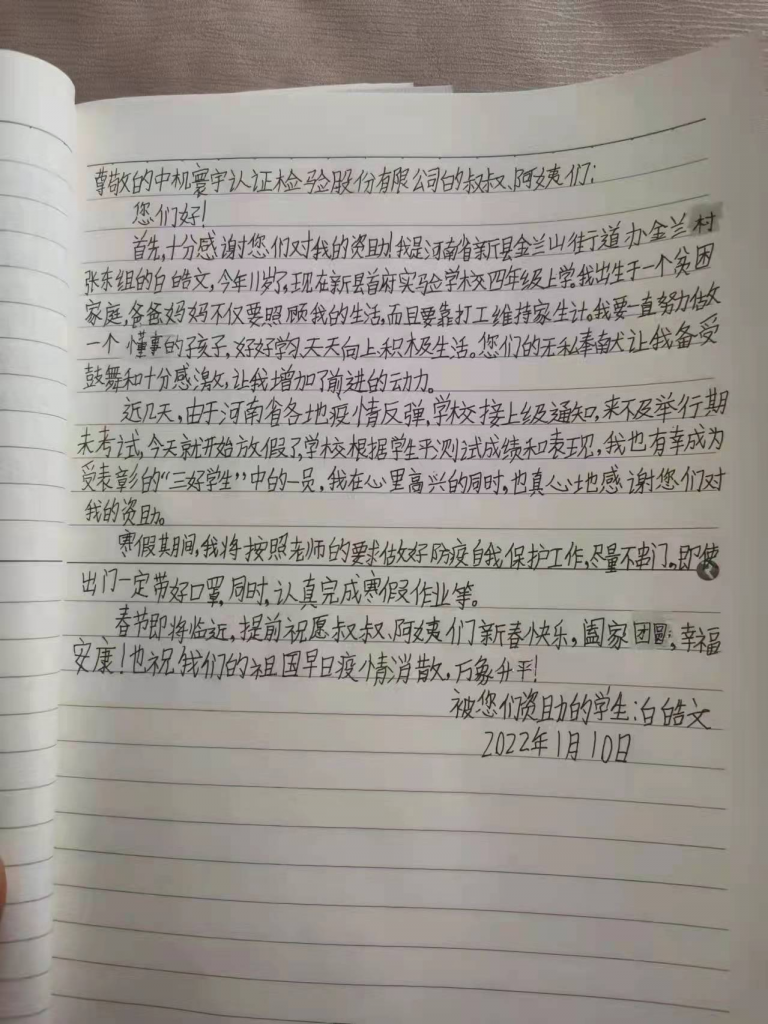 尊敬的中机寰宇认证检验股份有限公司的叔叔、阿姨们:
您们好!
首先,十分感谢您们对我的资助!我是河南省新县金兰山街道办金兰村
张东组的白皓文,今年11岁了,现在新县首府实验学校四年级上学。我出生于一个贫困
家庭,爸爸妈妈不仅要照顾我的生活,而且要靠打工维持家生计。我要一直努力做
一个懂事的孩子,好好学习,天天向上,积极生活。您们的无私奉献让我备受
鼓舞和十分感激,让我增加了前进的动力。
近几天,由于河南省各地疫情反弹,学校接上级通知,来不及举行期
末考试,今天就开始放假了,学校根据学生平测试成绩和表现,我也有幸成为
受表彰的“三好学生”中的一员,我在心里高兴的同时,也真心地感谢您们对
我的资助。
寒假期间,我将按照老师的要求做好防疫自我保护工作,尽量不串门。即使
出门一定带好口罩,同时,认真完成寒假作业等。
春节即将临近,提前祝愿叔叔、阿姨们新春快乐,阖家团圆,幸福
安康!也祝我们的祖国早日疫情消散,万象升平!
被您们资助的学生:白皓文
2022年1月10日